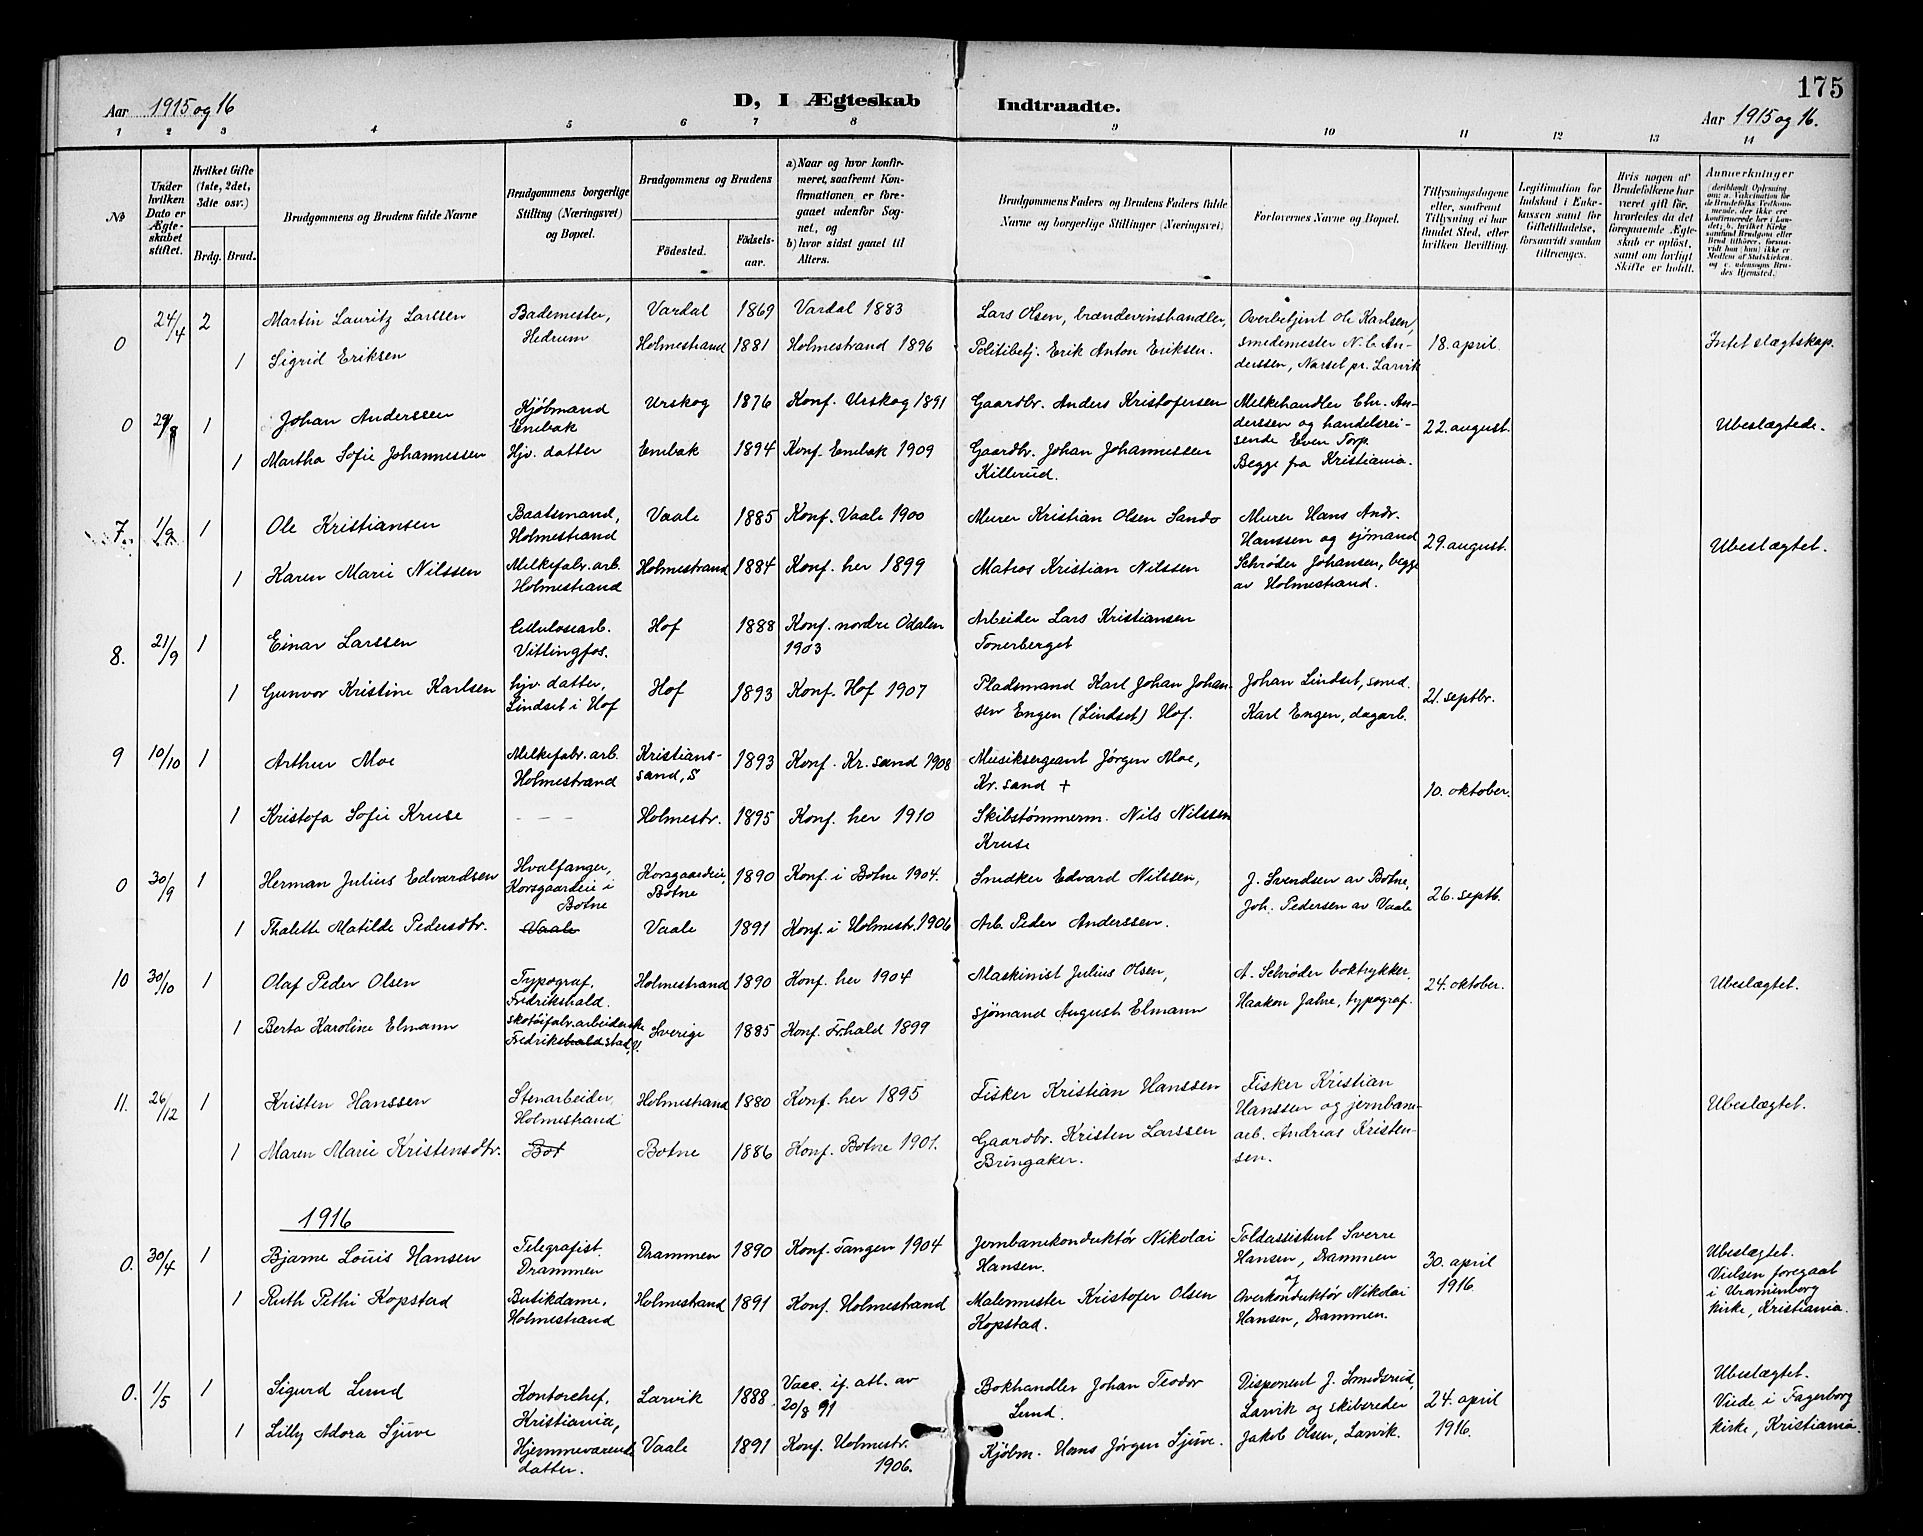 175
Aar 1915 og 16
D, I Ægteskab Indtraadte.
Aar 1915 og 16.
1 2 3 4 5 6 7 8 9 10 11 12 13 14
No
Under hvilken Dato er Ægteskabet stiftet.
Hvilket Gifte (1ste, 2det, 3dte osv.)
Brdg. Brud.
Brudgommens og Brudens fulde Navne
Brudgommens borgerlige Stilling (Næringsvei) og Bopæl.
Brudgommens og Brudens
Födested.
Födsels-aar.
a) Naar og hvor konfirmeret, saafremt Konfirmationen er foregaaet udenfor Sognet, og
b) hvor sidst gaaet til Alters.
Brudgommens Faders og Brudens Faders fulde Navne og borgerlige Stillinger (Næringsvei)
Forlovernes Navne og Bopæl.
Tillysningsdagene eller, saafremt Tillysning ei har fundet Sted, efter hvilken Bevilling.
Legitimation for Indskud i Enkekassen samt for Giftetilladelse, forsaavidt saadan tiltrænges.
Hvis nogen af Brudefolkene har været gift för, hvorledes da det foregaaende Ægteskab er oplöst, samt om lovligt Skifte er holdt.
Anmærkninger
0 24/4 2 Martin Lauritz Larssen Bademester, Hedrum Vardal 1869 Vardal 1883 Lars Olsen, brændevinshandler, Overbetjent Ole Karlsen, smedemester N. C. Anderssen, Narset pr. Larvik 18. april. Intet slægtskap.
1 Sigrid Eriksen Holmestrand 1881 Holmestrand 1896 Politibetj. Erik Anton Eriksen.
0 29/8 1 Johan Anderssen Kjøbmand Enebak Urskog 1876 Konf. Urskog 1891 Gaardbr. Anders Kristofersen Melkehandler Chr. Anderssen og handelsreisende Even Torp. Begge fra Kristiania. 22. august. Ubeslægtede.
1 Martha Sofie Johannessen Hjv. datter Enebak 1894 Konf. Enebak 1909 Gaardbr. Johan Johannessen Killerud.
7. 1/9 1 Ole Kristiansen Baatsmand, Holmestrand Vaale 1885 Konf. Vaale 1900 Murer Kristian Olsen Sando Murer Hans Andr. Hanssen og sjømand Schrøder Johansen, begge av Holmestrand. 29. august. Ubeslægtet.
1 Karen Marie Nilssen Melkefabr. arb. Holmestrand Holmestrand 1884 Konf. her 1899 Matros Kristian Nilssen
8. 21/9 1 Einar Larssen Cellulosearb. Vittingfos. Hof 1888 Konf. nordre Odalen 1903 Arbeider Lars Kristiansen Tonerberget
1 Gunvor Kristine Karlsen hjv. datter, Lindset i Hof Hof 1893 Konf. Hof 1907 Pladsmand Karl Johan Johansen Engen (Lindset) Hof. Johan Lindset, smed. Karl Engen, dagarb. 21. septbr.
9 10/10 1 Arthur Moe Melkefabr. arb. Holmestrand Kristianssand, S 1893 Konf. Kr. sand 1908 Musiksergeant Jørgen Moe, Kr. sand + 10. oktober.
1 Kristofa Sofie Kruse — — — Holmestr. 1895 Konf. her 1910 Skibstømmerm. Nils Nilssen Kruse
0 30/9 1 Herman Julius Edvardsen Hvalfanger, Korsgaardeie i Botne Korsgaardeie, Botne 1890 Konf. i Botne 1904. Snedker Edvard Nilssen, J. Svendsen av Botne, Joh. Pedersen av Vaale 26. septb.
1 Thalette Matilde Pedersdtr. Vaale Vaale 1891 Konf. i Holmestr. 1906 Arb. Peder Anderssen.
10 30/10 1 Olaf Peder Olsen Typograf, Fredrikshald. Holmestrand 1890 Konf. her 1904 Maskinist Julius Olsen, A. Schrøder boktrykker, Haakon Jahre, typograf. 24. oktober. Ubeslægtet.
1 Berta Karoline Elmann skotøifabr. arbeiderske Fredrikshald stad, V. Sverige 1885 Konf. Fr.hald 1899 sjømand August Elmann
11. 26/12 1 Kristen Hanssen Stenarbeider, Holmestrand Holmestrand 1880 Konf. her 1895 Fisker Kristian Hanssen Fisker Kristian Hanssen og jernbanearb. Andreas Kristensen. Ubeslægtet.
1 Maren Marie Kristensdtr. Bot Botne 1886 Konf. Botne 1901. Gaardbr. Kristen Larssen Bringaker.
1916
0. 30/4 1 Bjarne Louis Hansen Telegrafist. Drammen Drammen 1890 Konf. Tangen 1904 Jernbanekonduktør Nikolai Hansen. Toldassistent Sverre Hansen, Drammen og Overkonduktør Nikolai Hansen, Drammen. 30. april 1916. Ubeslægtet. Vielsen foregaat i Uranienborg kirke, Kristiania.
1 Ruth Pethi Kopstad Butikdame, Holmestrand Holmestrand 1891 Konf. Holmestrand Malermester Kristofer Olsen Kopstad.
0. 1/5 1 Sigurd Lund Kontorchef, Kristiania, Larvik 1888 Vacc. if. att. av 20/8 91 Bokhandler Johan Teodor Lund. Disponent J. Smedsrud, Larvik og skibsreder Jakob Olsen, Larvik. 24. april 1916. Ubeslægtet. Viede i Fagerborg kirke, Kristiania.
1 Lilly Adora Sjuve Hjemmeværende datter. Vaale 1891 Konf. Holmestr. 1906. Kjøbm. Hans Jørgen Sjuve.